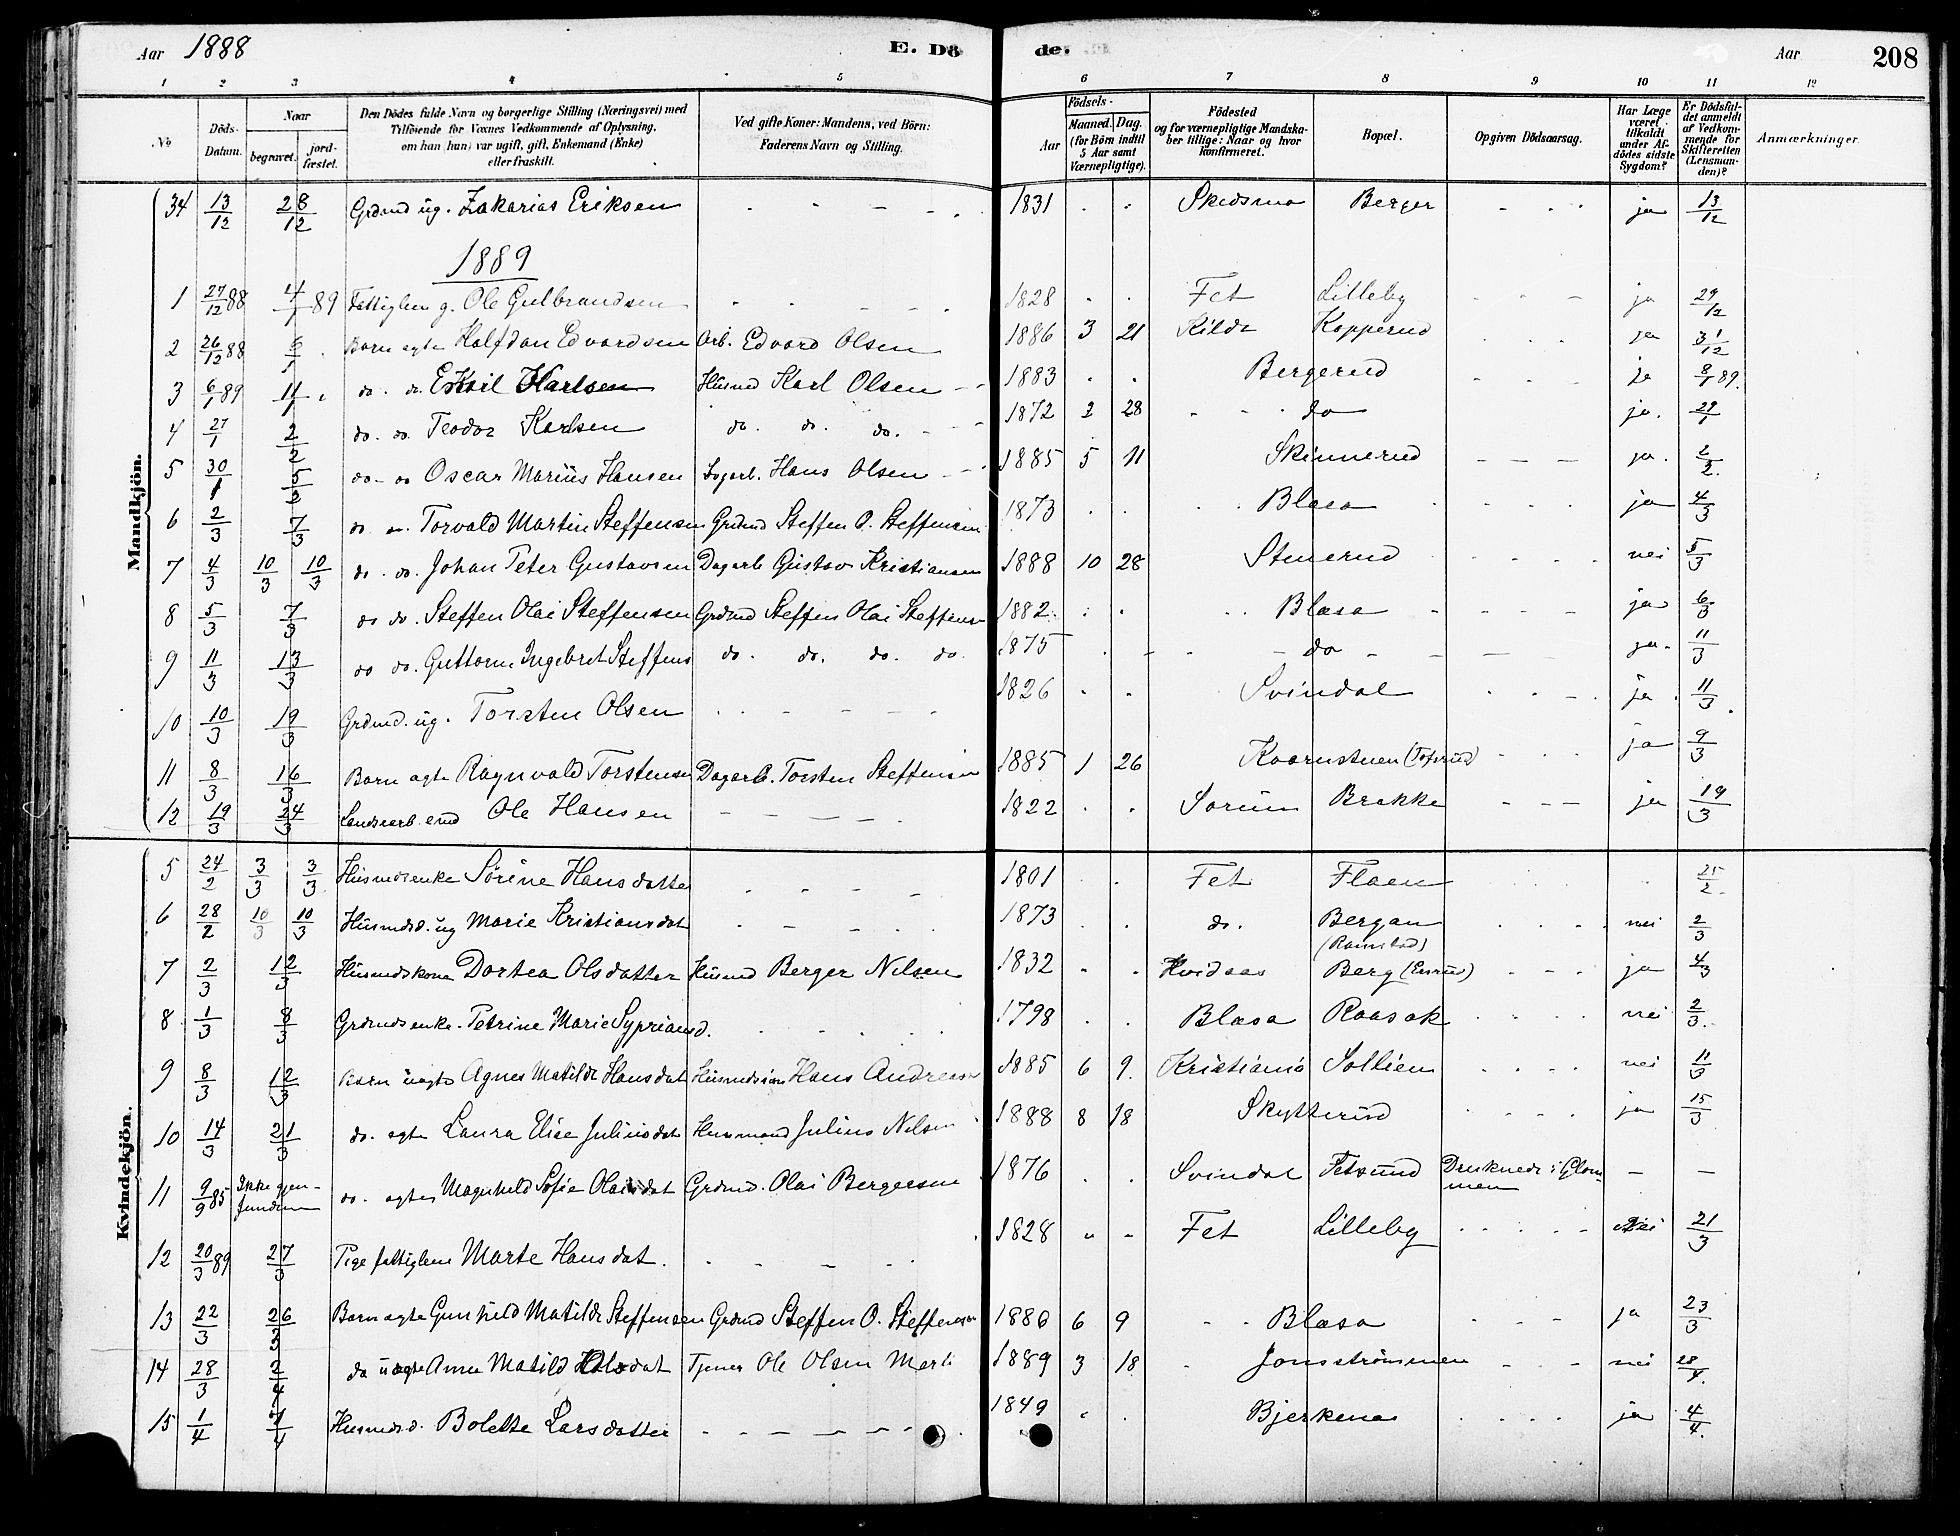 Aar 1888 E. Dö de. Aar 208
1 2 3 4 5 6 7 8 9 10 11 12
No Döds-Datum. Naar begravet. jord-fæstet. Den Dödes fulde Navn og borgerlige Stilling (Næringsvei) med Tilföiende for Voxnes Vedkommende af Oplysning, om han (hun) var ugift, gift, Enkemand (Enke) eller fraskilt. Ved gifte Koner: Mandens, ved Börn: Faderens Navn og Stilling. Födsels- Aar Maaned. Dag. (for Börn indtil 5 Aar samt Værnepligtige). Födested og for værnepligtige Mandskaber tillige: Naar og hvor konfirmeret. Bopæl. Opgiven Dödsaarsag. Har Læge været tilkaldt under Afdödes sidste Sygdom? Er Dödsfaldet anmeldt af Vedkommende for Skifteretten (Lensmanden)? Anmærkninger
Mandkjön.
34 13/12 28/12 Grdmd ug. Zakarias Eriksen 1831 Skedsmo Berger ja 13/12
1889
1 27/12 88 4/1 89 Fattiglem g. Ole Gulbrandsen 1828 Fet Lilleby ja 29/12
2 26/12 88 Barn ægte Halfdan Edvardsen Arb. Edvard Olsen 1886 3 21 Kilde Kopperud ja 31/12
3 6/1 89 11/1 do. do. Eskil Karlsen Husmd Karl Olsen 1883 Bergerud ja 8/1 89.
4 27/1 2/2 do. do. Teodor Karlsen do. do. do. 1872 2 28 do ja. 29/1
5 30/1 5/2 do - do Oscar Marius Hansen Hans Olsen 1885 5 11 Skinnerud ja. 2/2.
6 2/3 7/3 do do. Torvald Martin Steffensen Grdmd Steffen O. Steffensen 1873 Blæsa ja 4/3
7 4/3 10/3 10/3 do. do. Johan Peter Gustavsen Dagarb Gustav Kristiansen 1888 10 28 Stenerud nei 5/3
8 5/3 7/3 do do. Steffen Olai Steffensen Grdmd Steffen Olai Steffens 1882 Blæsa ja 6/3
9 11/3 13/3 do do. Guttorm Ingebret Steffens do. do. do. do. 1875 do ja. 11/3
10 10/3 19/3 Grdmd. ug. Torsten Olsen 1826 Svindal ja 11/3
11 8/3 16/3 Barn ægte Ragnvald Torstensen Dagarb. Torsten Steffensen 1885 1 26 Kaarnstuen ja 9/3
12 19/3 24/3 Landsarb. emd Ole Hansen 1822 Sørum Brække ja 19/3
Kvindekjön.
5 24/2 3/3 3/3 Husmdsenke Sørine Hansdatter 1801 Fet Flaen 25/2
6 28/2 10/3 10/3 Husmdsd. ug Marie Kristiansdat 1873 do. Bergan (Ramstad) nei 2/3
7 2/3 12/3 Husmdskone Dortea Olsdatter Husmd Berger Nilsen 1832 Hvidsas Berg ja 4/3
8 1/3 8/3 Grdmdsenke. Petrine Marie Sypriansd. 1798 Blæsa Raasok nei 2/3
9 8/3 12/3 Barn uægte Agnes Matilde Hansdat Husmdssøn Hans Andreas 1885 6 9. Kristiania Sollien nei 11/3
10 14/3 21/3 do. ægte Laura Elise Juliusdat Husmand Julius Nelsen 1888 8 18 Skytterud ja 15/3
11 9/9 85 Ikke gjenfunden do. ægte Magnhild Sofie Olaisdat Grdmd. Olai Bergersen 1876 Svindal Fetsund Druknede i Glommen — —
12 20/3 89 27/3 Pige fattiglem Marte Hansdat. 1828 Fet Lilleby Nei 21/3
13 22/3 26/3 Barn ægte Gunhild Matilde Steffensen Grdmd Steffen O. Steffensen 1886 6 9 Blæsa ja 23/3
14 28/3 2/4 do uægte Anne Matild Olsdat Tjener Ole Olsen 1889 3 18 Jonsstrømmen nei 28/4
15 1/4 7/4 Husmdsd. Bolette Larsdatter 1849 Bjerkenes ja 4/4.